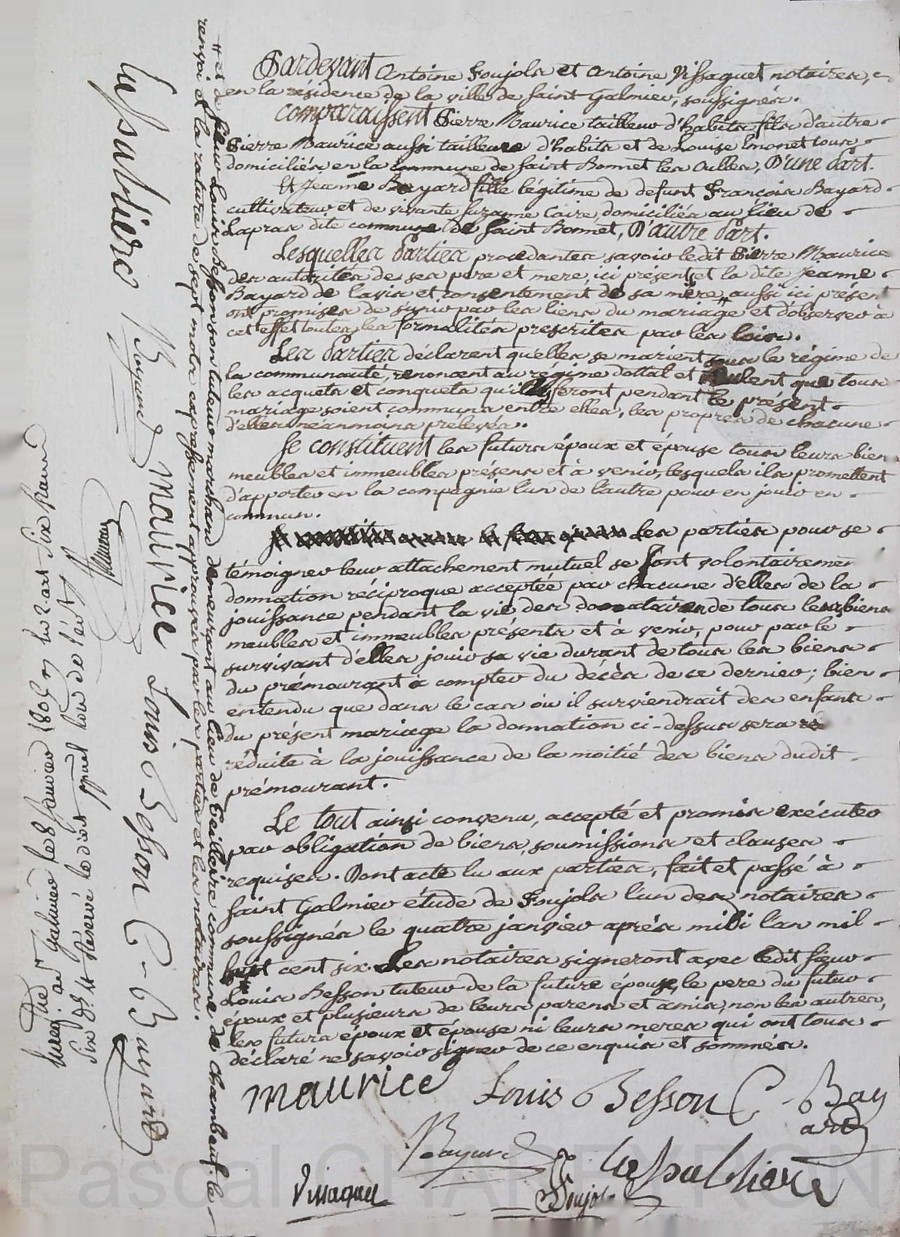 Pardevant Antoine Poujola et Antoine Vissaguet notaires,
en la résidence de la ville de Saint Galmier, soussignés.
Comparaissent Pierre Maurice tailleur d'habits fils d'autre
Pierre Maurice aussi tailleur d'habits et de Louise Imonet tous
domiciliés en la commune de Saint Bonnet les Oulles, D'une Part.
Et Jeanne Bayard fille légitime de defunt François Bayard
cultivateur et de vivante Suzanne Coire, domiciliés au lieu de
Lapras dite commune de Saint Bonnet, D'autre Part.
Lesquelles Parties procedantes savoir ledit Pierre Maurice
des autorités de ses pere et mere, ici présent et la dite Jeanne
Bayard de l'avis et consentement de sa mère # aussi ici présent
ont promises de s'unir par les liens du mariage et d'observer à
cet effet toutes les formalités prescrites par les loix.
Les Parties déclarent quelles se marient sous le régime de
la communauté, renoncent au régime dottal et veulent que tous
les acquets et conquets qu'ils feront pendant le présent
mariage soient communs entre elles, les propres de chacune
d'elles néanmoins prelevés.
Se constituent les futurs époux et épouse tous leurs bien
meubles et immeubles présens et à venir, lesquels ils promettent
d'apporter en la compagnie l'un de l'autre pour en jouir en
commun.
Les parties pour se
témoigner leur attachement mutuel se font volontairement
donnation réciproque acceptée par chacune d'elles de la
jouissance pendant la vie des donataires de tous les biens
meubles et immeubles présents et à venir, pour par le
survivant d'elles jouir sa vie durant de tous les biens
du prémourant à compter du décès de ce dernier; bien
entendu que dans le cas où il surviendrait des enfants
du présent mariage la donnation ci-dessus sera ré
réduite à la jouissance de la moitié des biens dudit
prémourant.
Le tout ainsi convenu, accepté et promis exécuter
par obligation de biens, soumissions et clauses
requises. Dont acte lu aux parties, fait et passé à
Saint Galmier étude de Poujola l'un des notaires
soussignés le quatre janvier après midi l'an mil
huit cent six. Les notaires signeront avec ledit sieur
Louis Besson tuteur de la future épouse, le pere du futur
époux et plusieurs de leurs parens et amis, non les autres,
les futurs époux et épouse ni leurs meres qui ont tous
déclaré ne savoir signer de ce enquis et sommés.
maurice Louis Besson C-Bay
ard
Bayard
Vissaguet Poujola
# et de sieur Louis Besson son tuteur marchand demeurant au lieu de commune de Chambeuf le
renvoi et la rature de sept mots expressement approuvés par les parties et les notaires.
Bayard maurice Louis Besson C-Bayard
à St Galmier le 8 Janvier 1806
Pascal CHAMEYRON